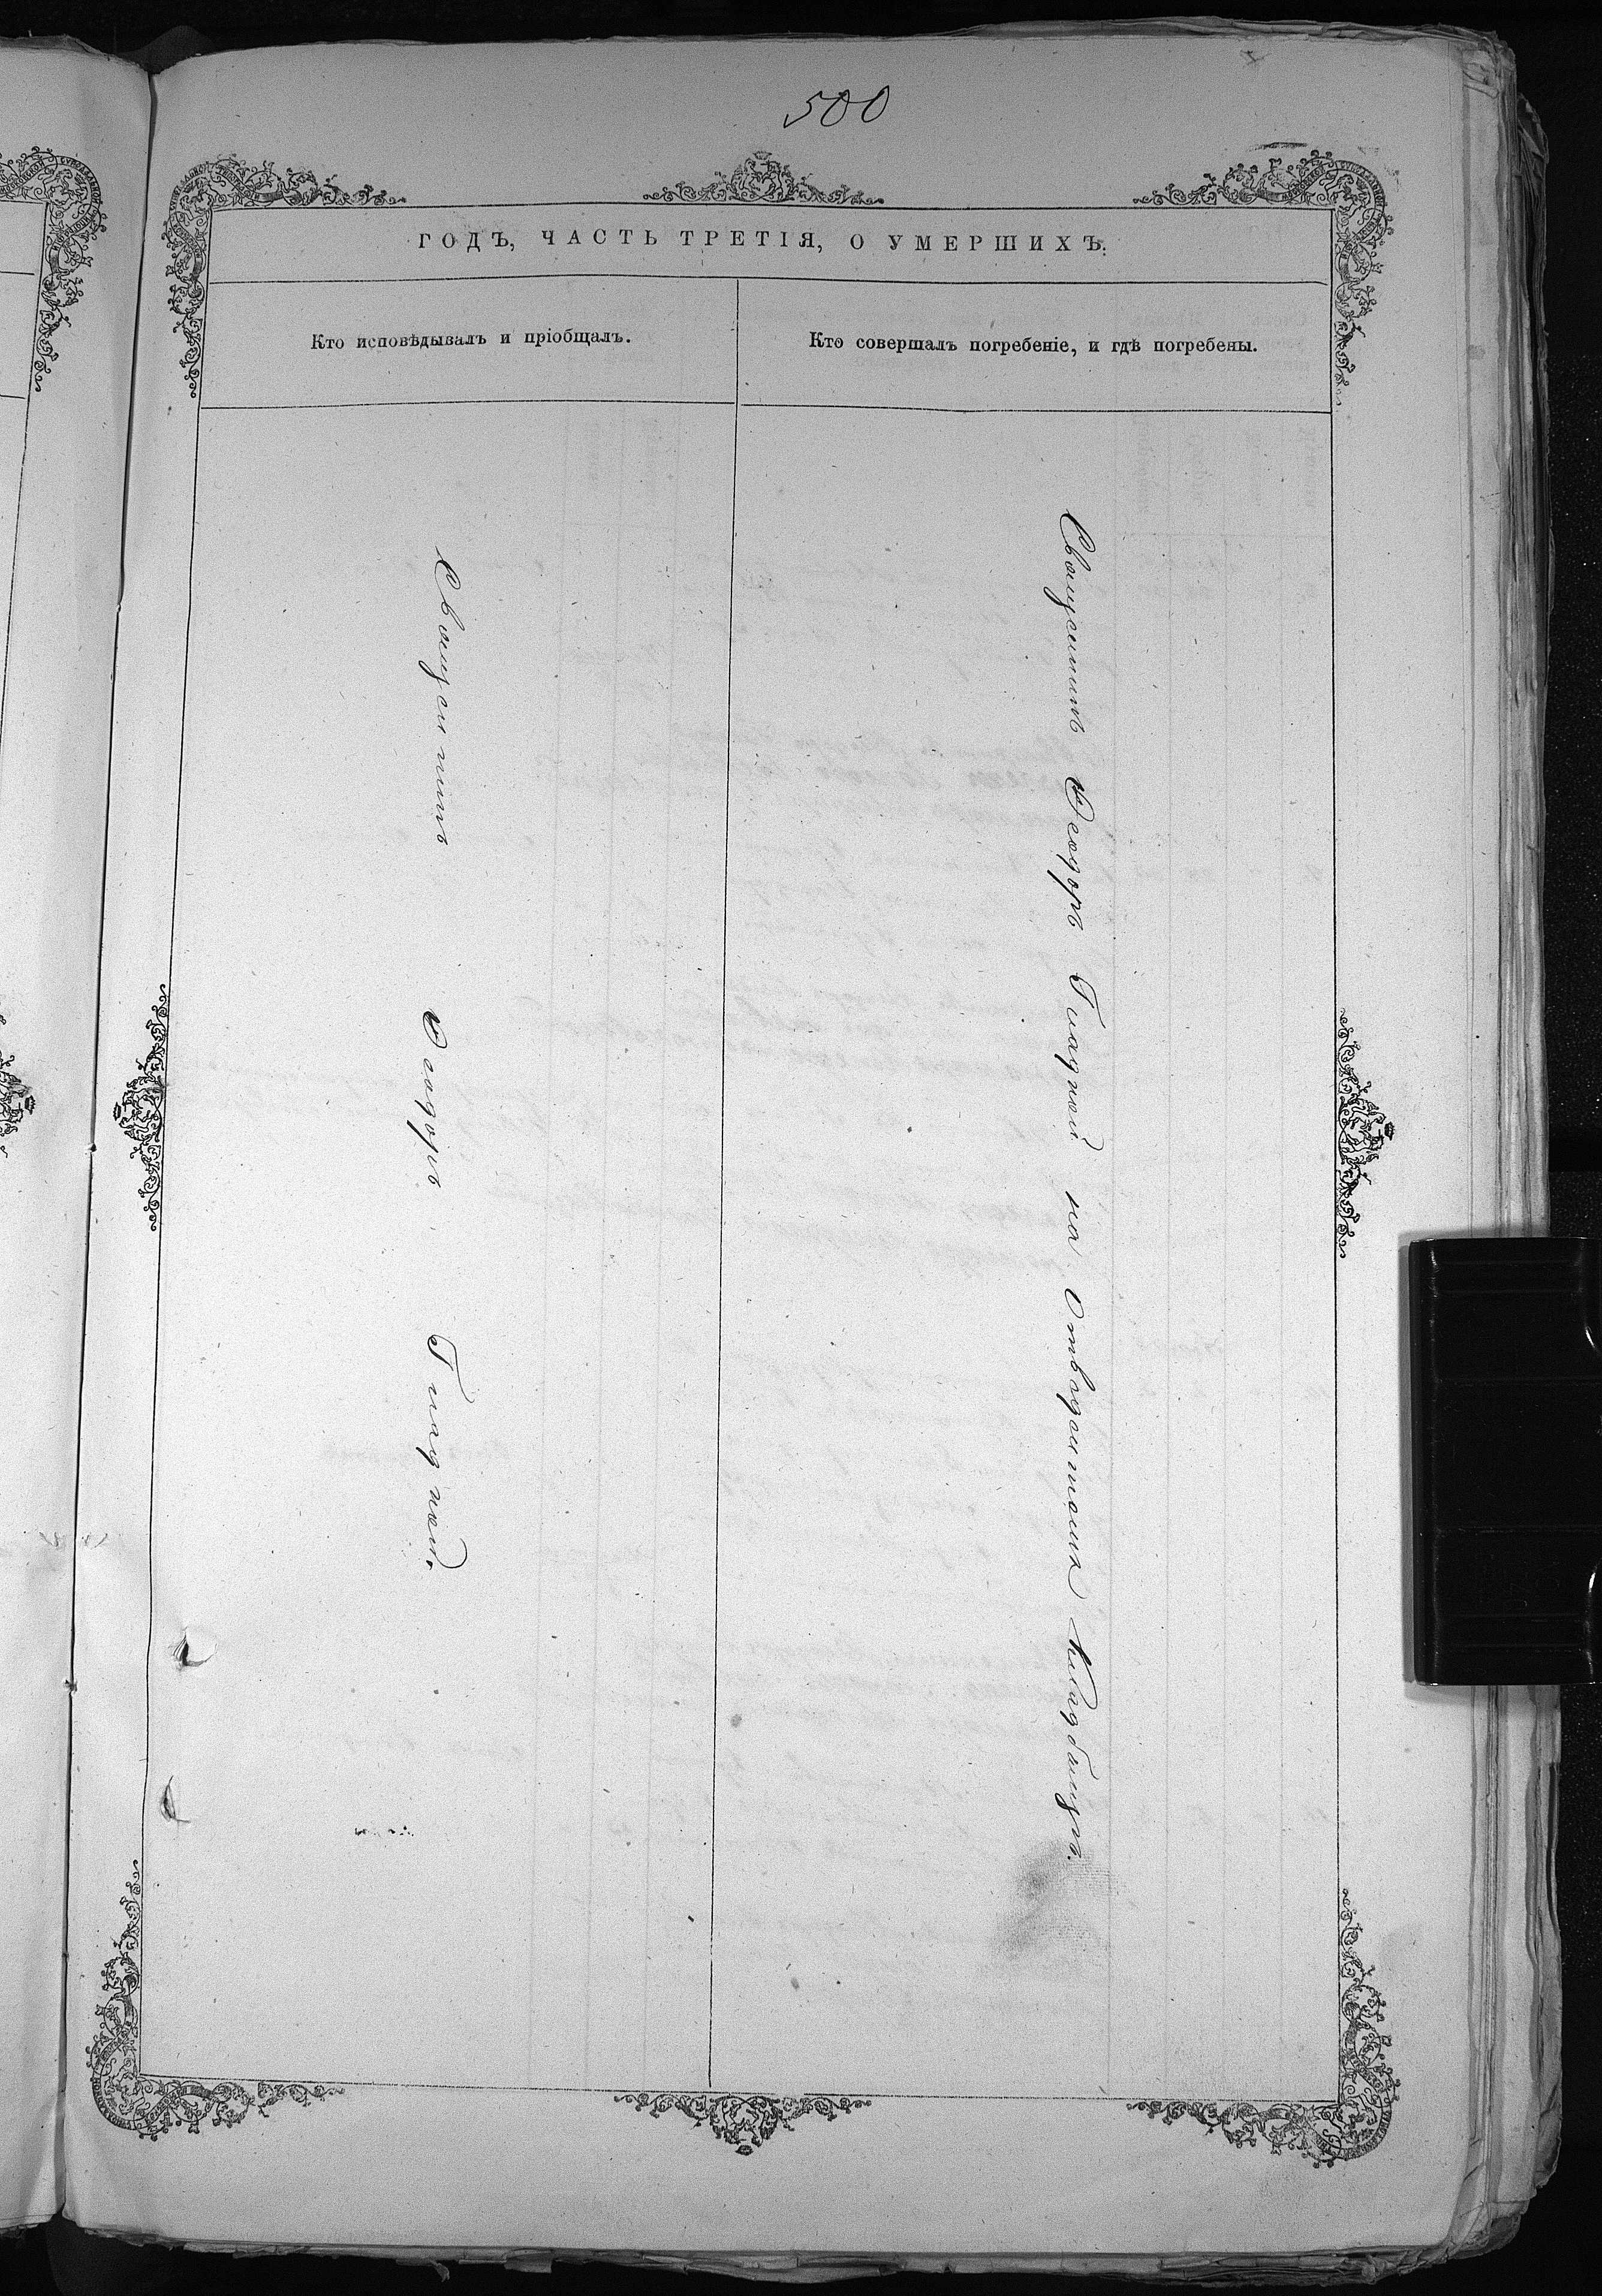 500
ГОДЪ, ЧАСТЬ ТРЕТІЯ, О УМЕРШИХЪ.
Кто исповѣдывалъ и пріобщалъ.
Кто совершалъ погребеніе, и гдѣ погребены.
Священникъ Ѳеодоръ Гладкой.
Священникъ Ѳеодоръ Гладкой на Отведенномъ Кладбищѣ.